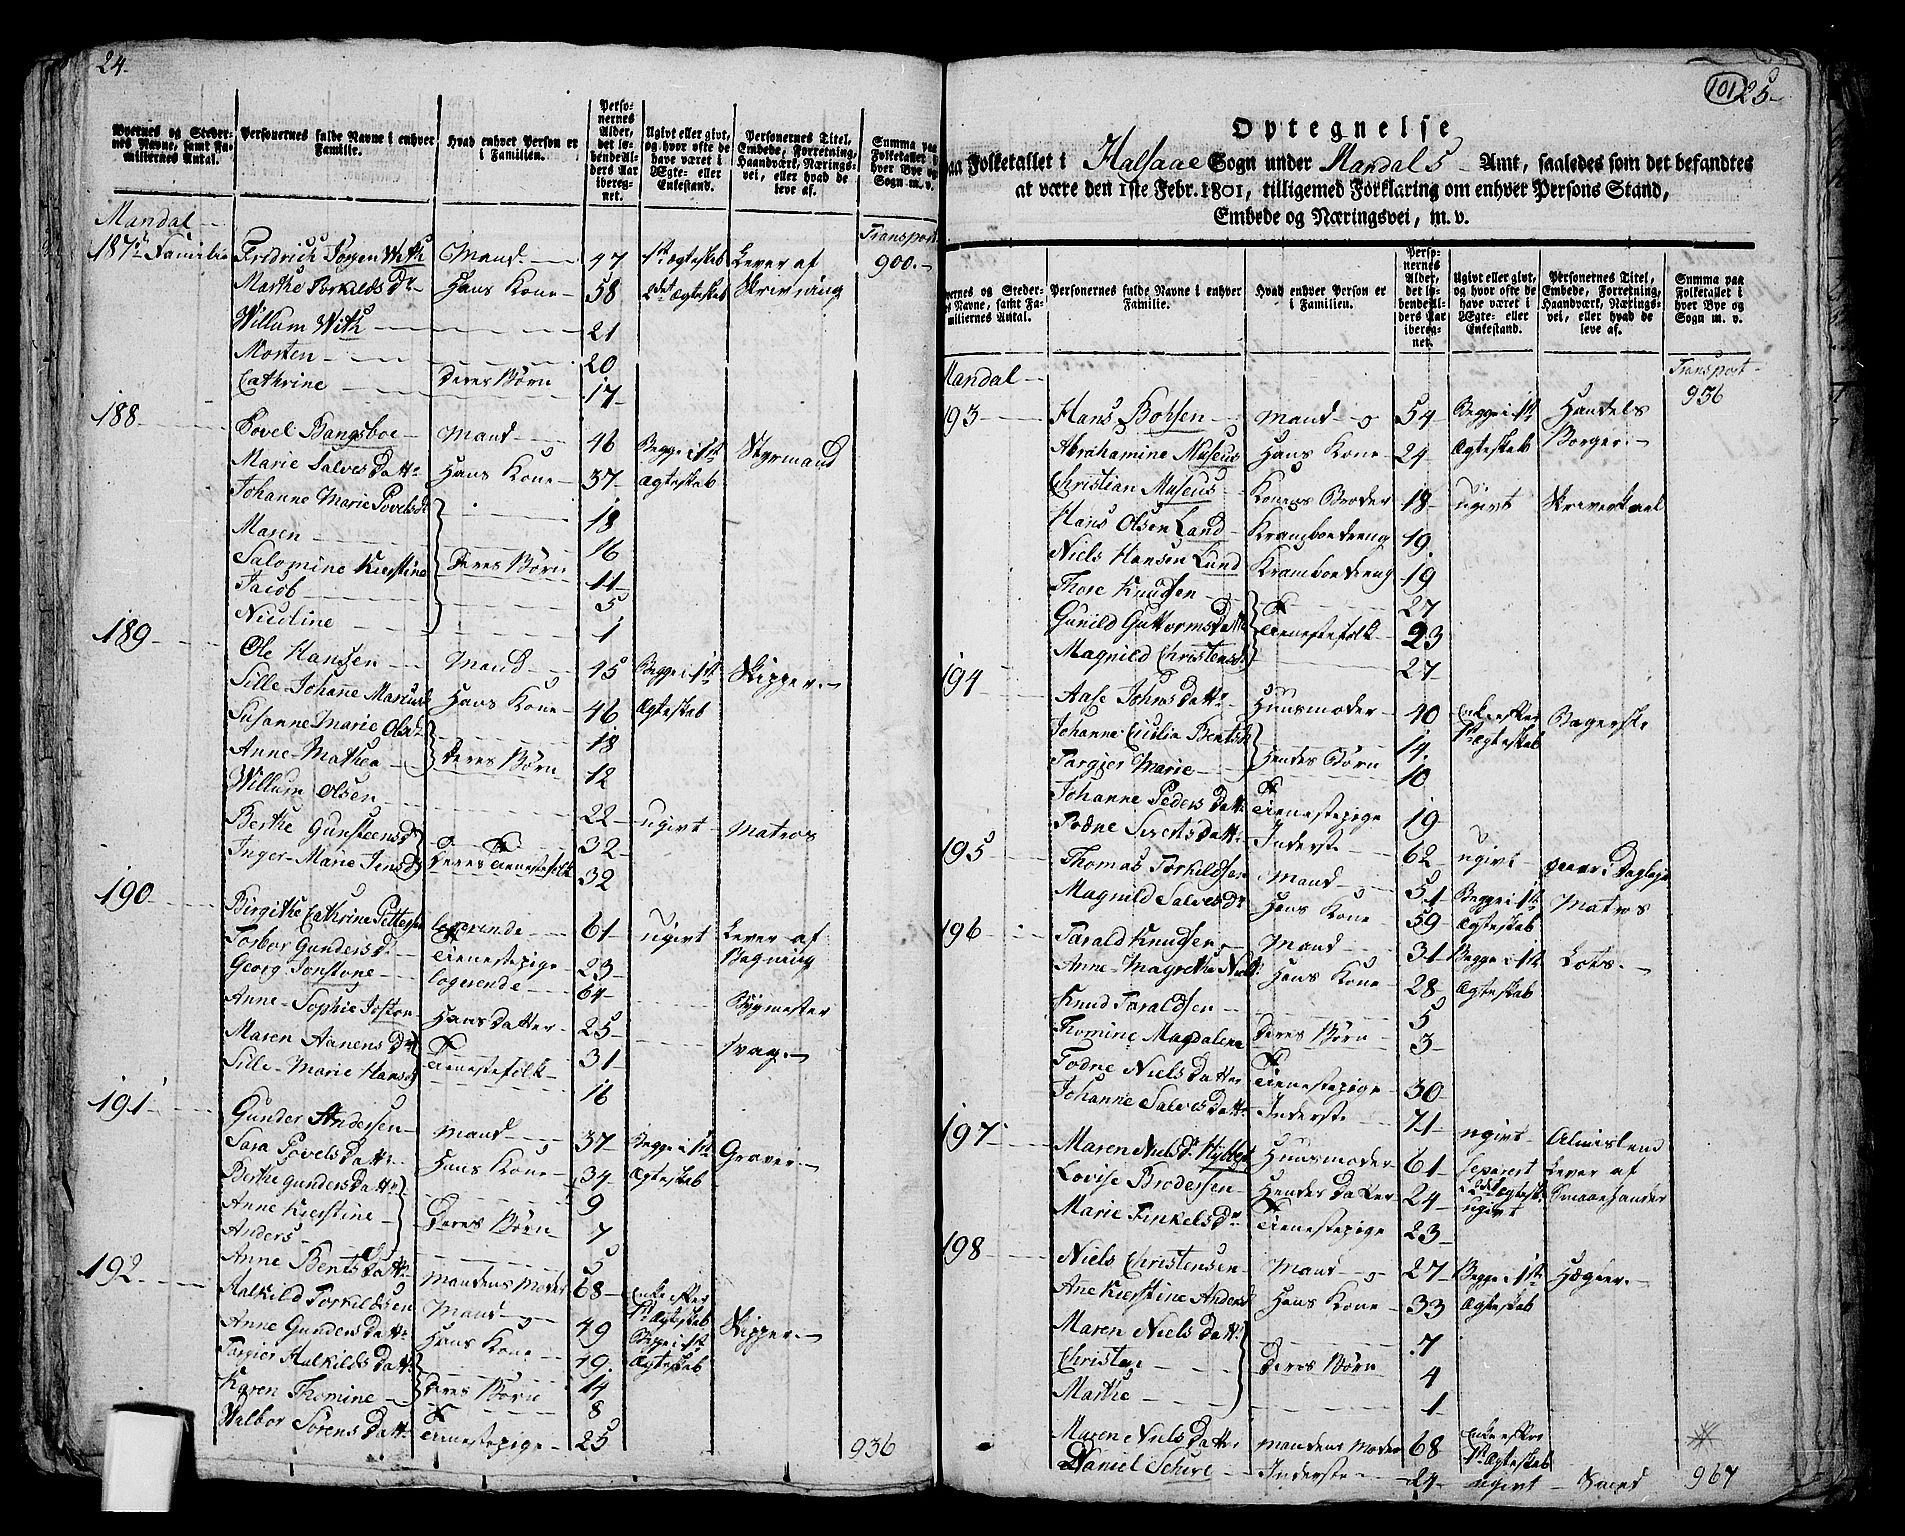 24.
Byernes og Stedernes Navne, samt Familiernes Antal.
Personernes fulde Navne i enhver Familie.
Hvad enhver Person er i Familien.
Personernes Alder, det løbende Alders Aar iberegnet.
Ugivt eller givt, og hvor ofte de have været i Ægte- eller Enkestand.
Personernes Titel, Embede, Forretning, Haandværk, Næringsvei, eller hvad de leve af.
Summa paa Folketallet i hver Bye og Sogn m. v.
Mandal
Transport
900.
187de Familie Fridrich Jørgen With Mand 47 1ste ægteskab Lever af
Marthe Torkilds Dr Hans Kone 58 2det Ægteskab Skrivning
Willum With 21
Morten 20
Cathrine Deres Børn 17
188 Povel Bangsboe Mand 46 Begge i 1ste Styrmand
Marie Salves Datter Hans Kone 37 Ægteskab
Johanne Marie Povelsdr 18
Maren 16
Salomine Kierstine Deres Børn 11
Jacob 5
Nicoline 1
189 Ole Hansen Mand 45 Begge i 1ste Skipper
Sille Johane Marcusd Hans Kone 46 Ægteskab
Susanne Marie Olsd 18
Anne Mathea Deres Børn 12
Willum Olsen 22 ugivt Matros
Berthe Gunsteensd 32
Inger Marie Jensd Deres Tienestefolk 32
190 Birgithe Cathrine Pettersen logerende 61 ugivt Lever af
Torbor Gundersd Tienestepige 23 Bagning
Georg Jonstone logerende 64
Anne Sophie Hans datter 25
Maren Aanensd 31 svag
Sille Marie Hansd Tienestefolk 16
191 Gunder Andersen Mand 37 Begge i 1ste Graver
Sara Povels Datter Hans Kone 34 Ægteskab
Berthe Gunders Datter 9
Anne Kierstine Deres Børn 7
Anders 5
Anne Bents Datter Mandens Moder 68 Enke efter 1ste Ægteskab
192 Aalkild Torkildsen Mand 49 Begge i 1ste Skipper
Anne Gunders Datter Hans Kone 49 Ægteskab
Torgier Aalkilds Datter 14
Karen Thomine Deres Børn 8
Walbor Sørens Datter Tienestepige 25
936
101 25
Optegnelse
paa Folketallet i Halsaae Sogn under Mandals Amt, saaledes som det befandtes
at være den 1ste Febr. 1801, tilligemed Forklaring om enhver Persons Stand,
Embede og Næringsvei, m. v.
Byernes og Stedernes Navne, samt Familiernes Antal.
Personernes fulde Navne i enhver Familie.
Hvad enhver Person er i Familien.
Personernes Alder, det løbende Alders Aar iberegnet.
Ugivt eller givt, og hvor ofte de have været i Ægte- eller Enkestand.
Personernes Titel, Embede, Forretning, Haandværk, Næringsvei, eller hvad de leve af.
Summa paa Folketallet i hver Bye og Sogn m. v.
Mandal
Transport
936
193 Hans Bohsen Mand 54 Begge i 1ste Handels
Abrahamine Museus Hans Kone 24 Ægteskab Borger
Christian Museus Konens Broder 18 ugivt Skriverkarl
Hans Olsen Land Kramboedreng 19
Niels Hansen Lund Kramboedreng 19
Thore Knudsen 27
Gunild Guttormsdatter Tienestefolk 23
Magnild Christensd 27
194 Aase Johns datter Huusmoder 40 Enke efter Bagerske
Johanne Cicilia Bentsd 14 1ste Ægteskab
Torgier Marie Hendes Børn 10
Johanne Peders datter Tienestepige 19
Todne Siverts datter Inderste 62 ugivt gaaer i Dagleje
195 Thomas Torkildsen Mand 51 Begge i 1ste Matros
Magnild Salvesdr Hans Kone 59 Ægteskab
196 Tarald Knudsen Mand 31 Begge i 1ste Lots
Anne Magrethe Nielsd Hans Kone 28 Ægteskab
Knud Taraldsen 5
Thomine Magdalena Deres Børn 3
Todne Niels Datter Tienestepige 30
Johanne Salves datter Inderste 71 ugivt Almislem
197 Maren Nielsdr Huusmoder 61 separert Lever af
Lovise Brodersen Hendes Datter 24 2det Ægtesk. Smaaehandel
Marie Tinkelsdr Tienestepige 23 ugivt
198 Niels Christensen Mand 27 Begge i 1ste Høgker
Ane Kierstine Andersd Hans Kone 33 Ægteskab
Maren Niels Datter 7
Christen Deres Børn 4
Marthe 1
Maren Niels datter Mandens Moder 68 Enke efter 1ste Ægteskab
Daniel Schive Inderste 24 ugivt Svend
967